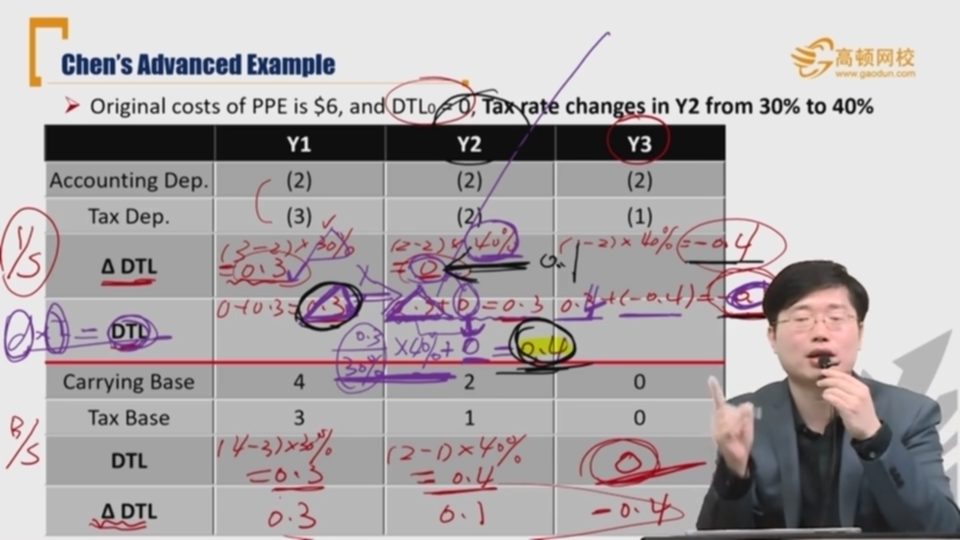 Chen's Advanced Example
高顿网校
www.gaodun.com
Original costs of PPE is $6, and DTL₀ = 0, Tax rate changes in Y2 from 30% to 40%
Y1 Y2 Y3
Accounting Dep. (2) (2) (2)
Tax Dep. (3) (2) (1)
I/S
(3-2)×30% (2-2)×40% (1-2)×40% = -0.4
Δ DTL =0.3 =0
0+0.3=0.3 0.3+0=0.3 +(-0.4)=
DTL
0.3
30% ×40%+0=0.4
Carrying Base 4 2 0
Tax Base 3 1 0
B/S
(4-3)×30% (2-1)×40%
DTL =0.3 =0.4 0
Δ DTL 0.3 0.1 -0.4